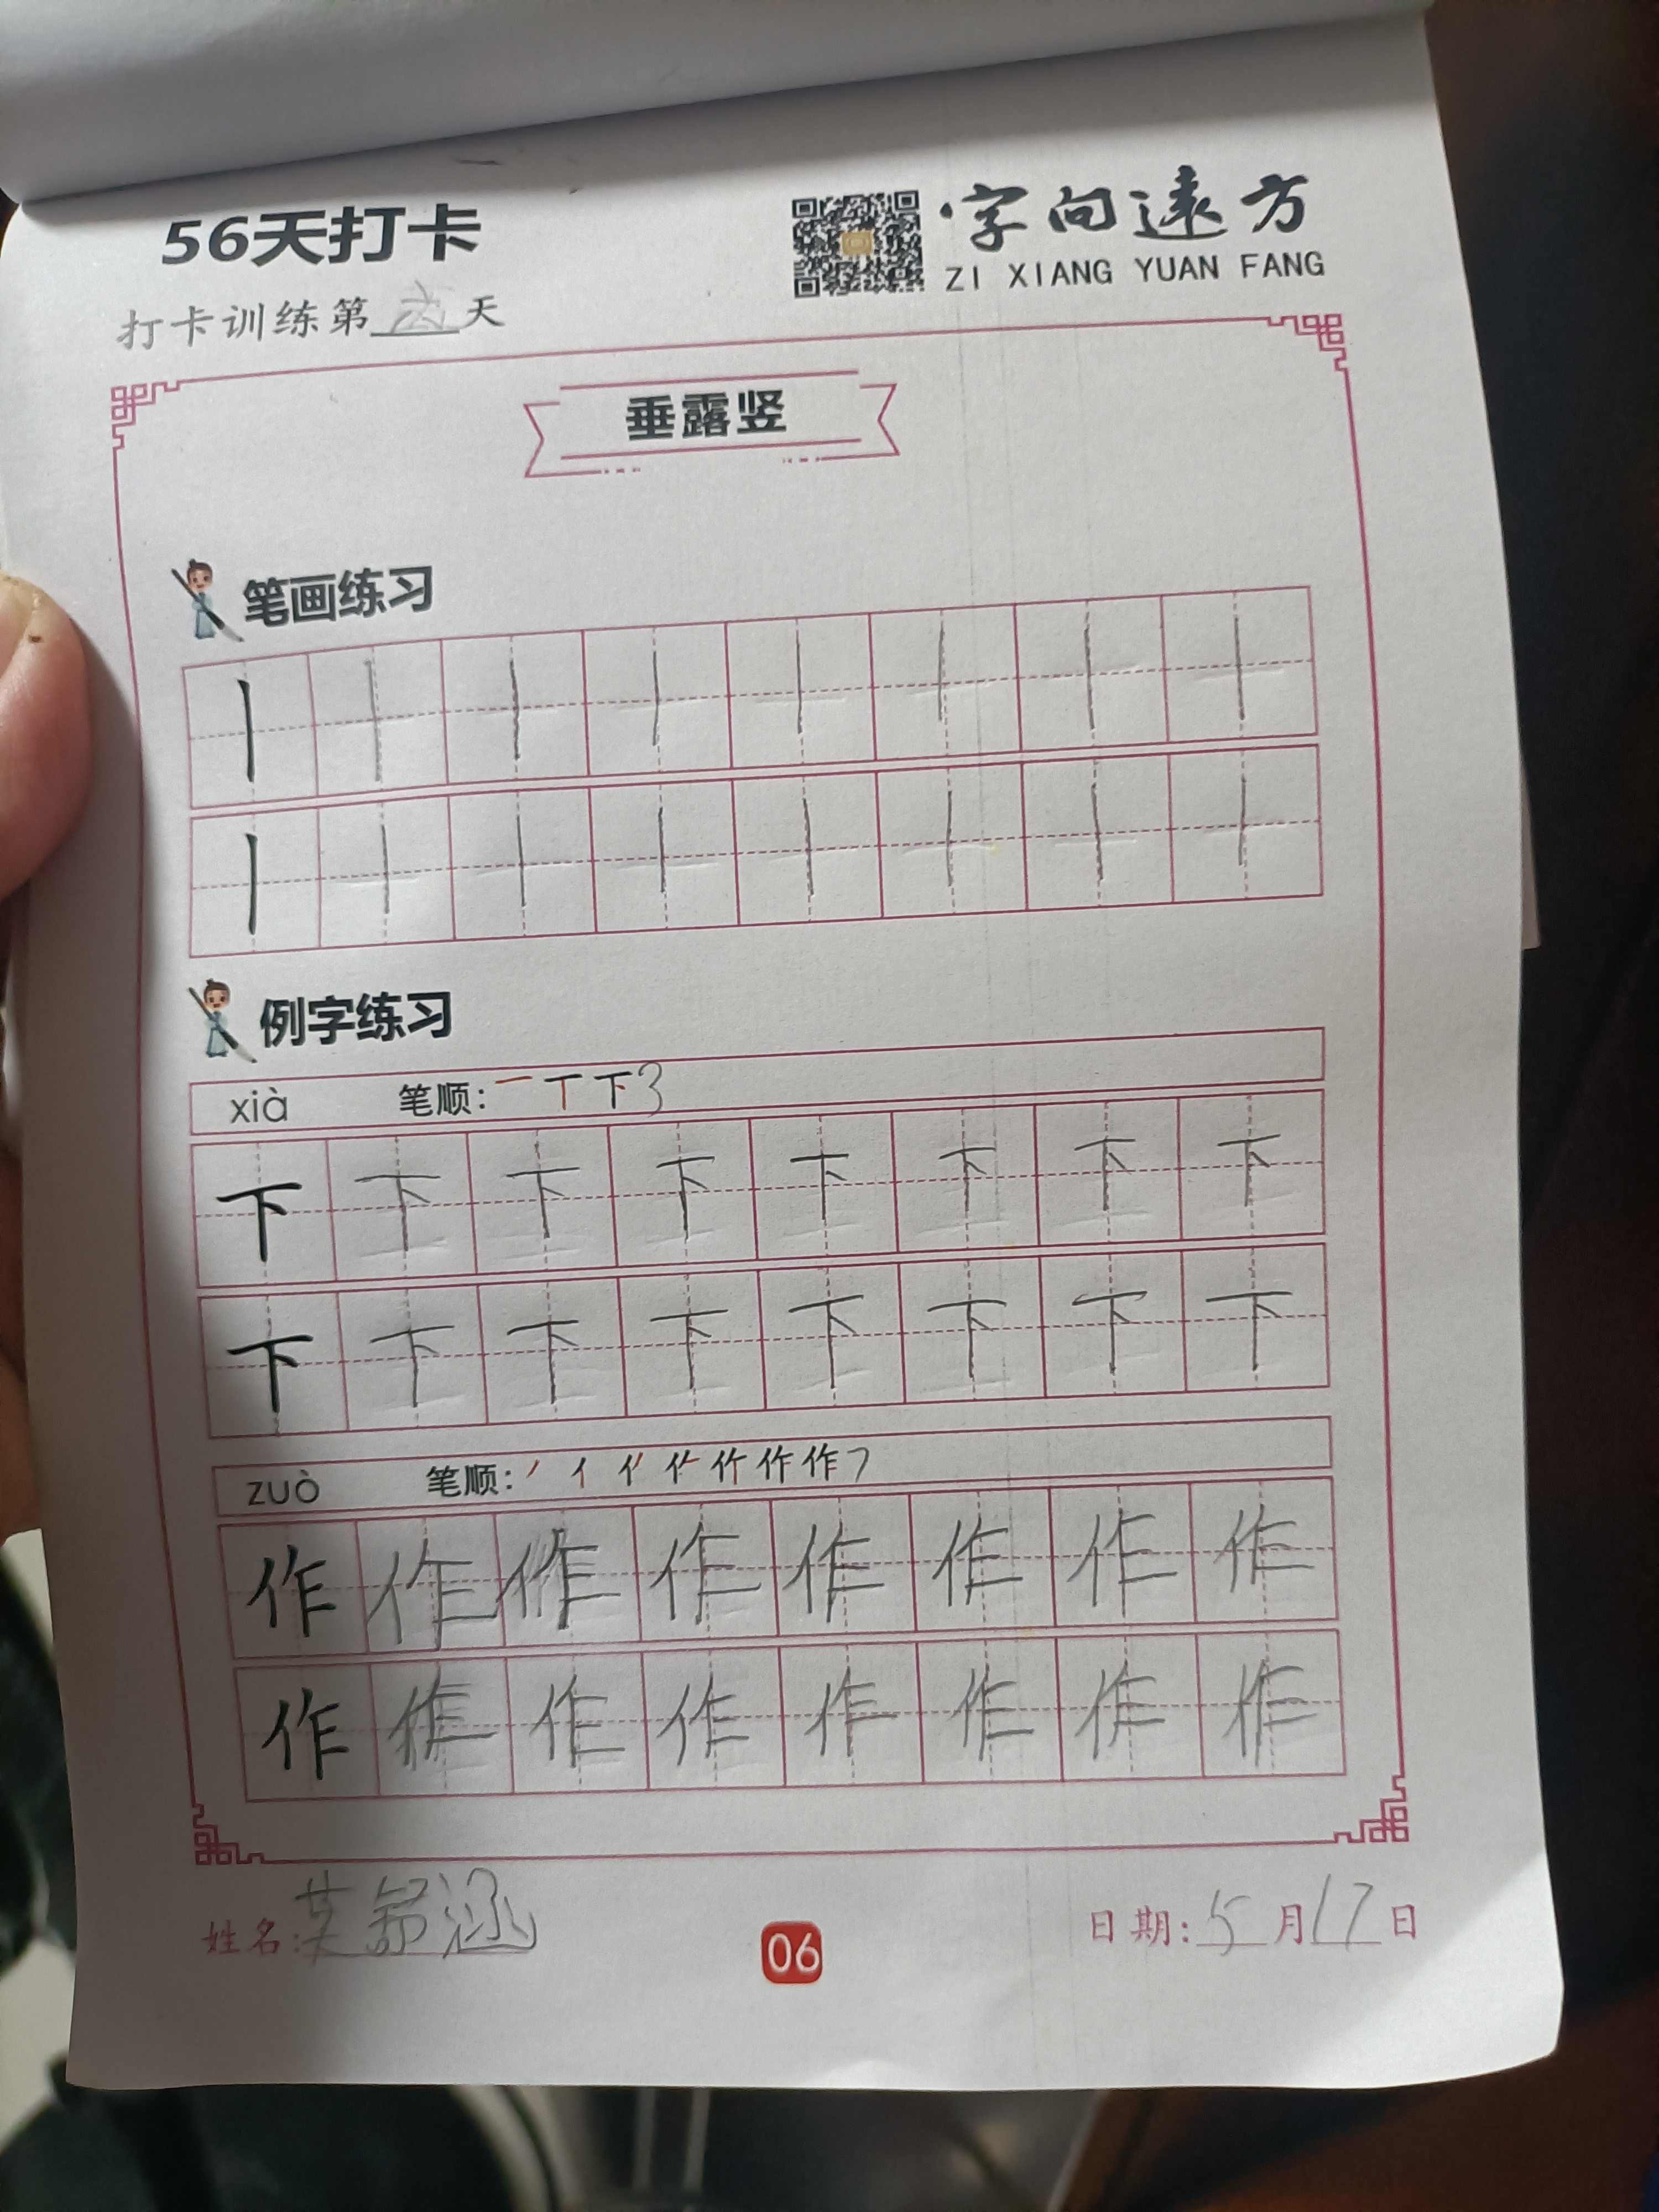 56天打卡
字向远方
ZI XIANG YUAN FANG
打卡训练第六天
垂露竖
笔画练习
例字练习
xià 笔顺: 一 丅 下 3
下 下 下 下 下 下 下 下
下 下 下 下 下 下 下 下
zuò 笔顺: 丿 亻 作 7
作 作 作 作 作 作 作 作
作 作 作 作 作 作 作 作
姓名: 舒涵
06
日期: 5月17日